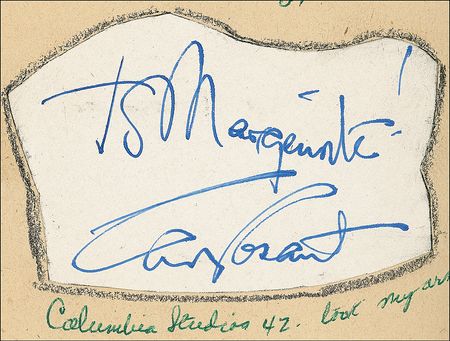 To Marguerite!
Cary Grant
Columbia Studios 42. took my arm